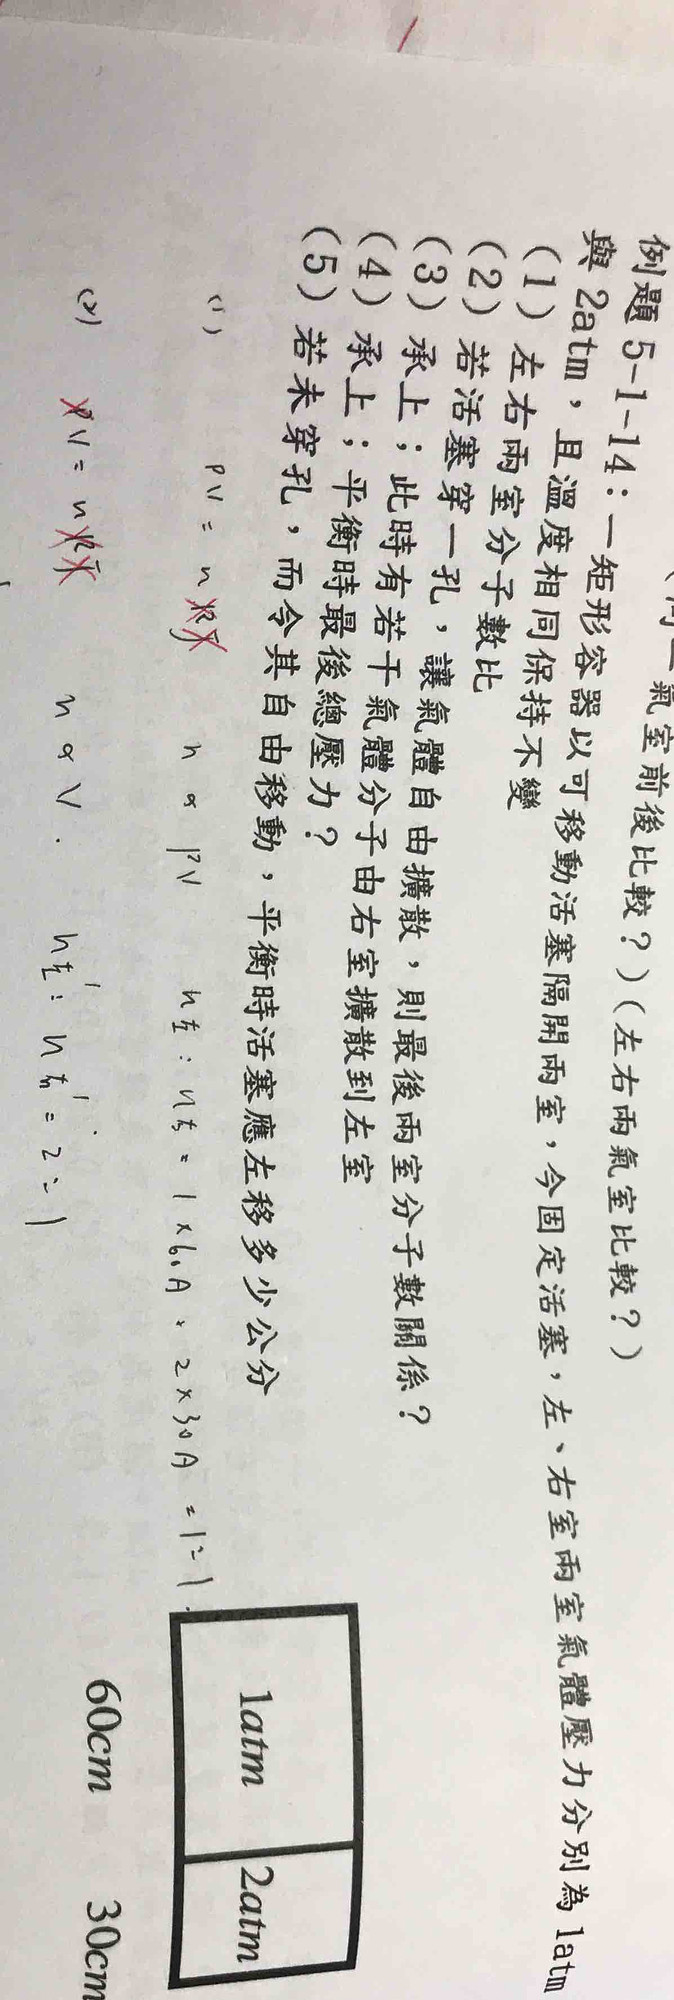 氣室前後比較?)(左右兩氣室比較?)
例題 5-1-14:一矩形容器以可移動活塞隔開兩室,今固定活塞,左、右室兩室氣體壓力分別為 1atm
與 2atm,且溫度相同保持不變
(1)左右兩室分子數比
(2)若活塞穿一孔,讓氣體自由擴散,則最後兩室分子數關係?
(3)承上;此時有若干氣體分子由右室擴散到左室
(4)承上;平衡時最後總壓力?
(5)若未穿孔,而令其自由移動,平衡時活塞應左移多少公分
(1) PV = nRT n ∝ PV n左 : n右 = 1×60A : 2×30A = 1:1
(2) PV = nRT n ∝ V . n左' : n右' = 2:1
1atm 2atm
60cm 30cm